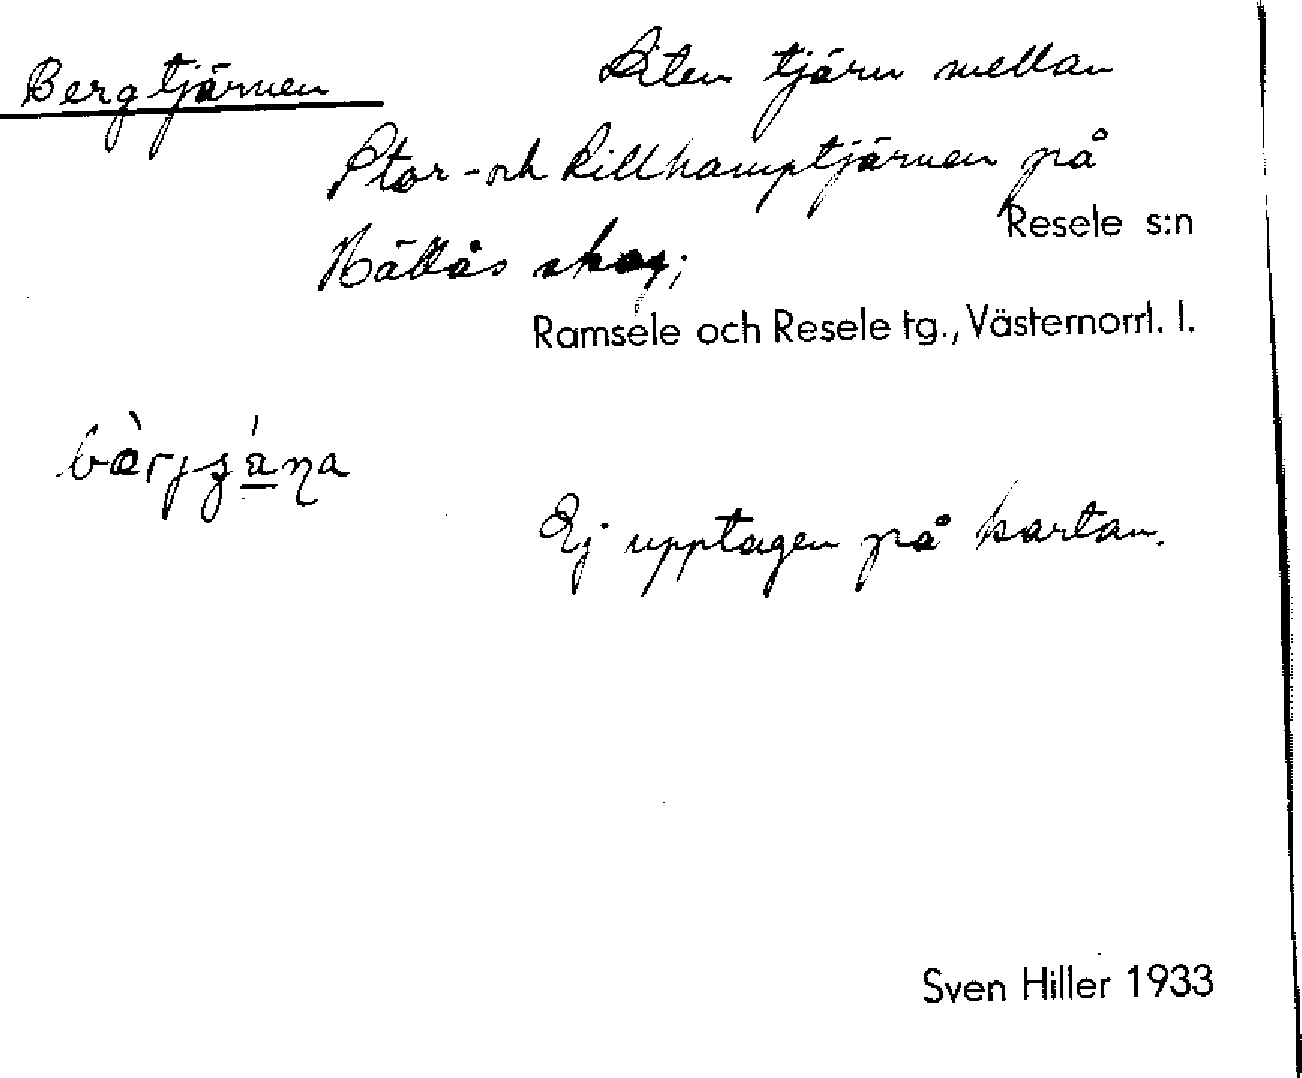 Bergtjärnen
Liten tjärn mellan
Stor- och Lillhamptjärnen på
Resele s:n
Hällås skog;
Ramsele och Resele tg., Västernorrl. l.
Ej upptagen på kartan.
Sven Hiller 1933